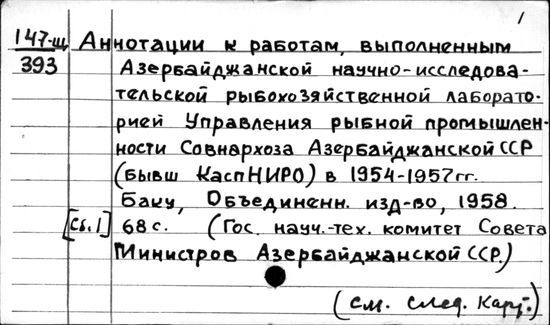 1
147-щ Аннотации к работам, выполненным
393 Азербайджанской научно-исследова-
тельской рыбохозяйственной лаборато-
рией Управления рыбной промышлен-
ности Совнархоза Азербайджанской ССР
(бывш КаспНИРО) в 1954-1957гг.
Баку, Объединенн. изд-во, 1958.
[Сб.1] 68 с. (Гос. науч.-тех. комитет Совета
Министров Азербайджанской ССР.)
(см. след. карт.)